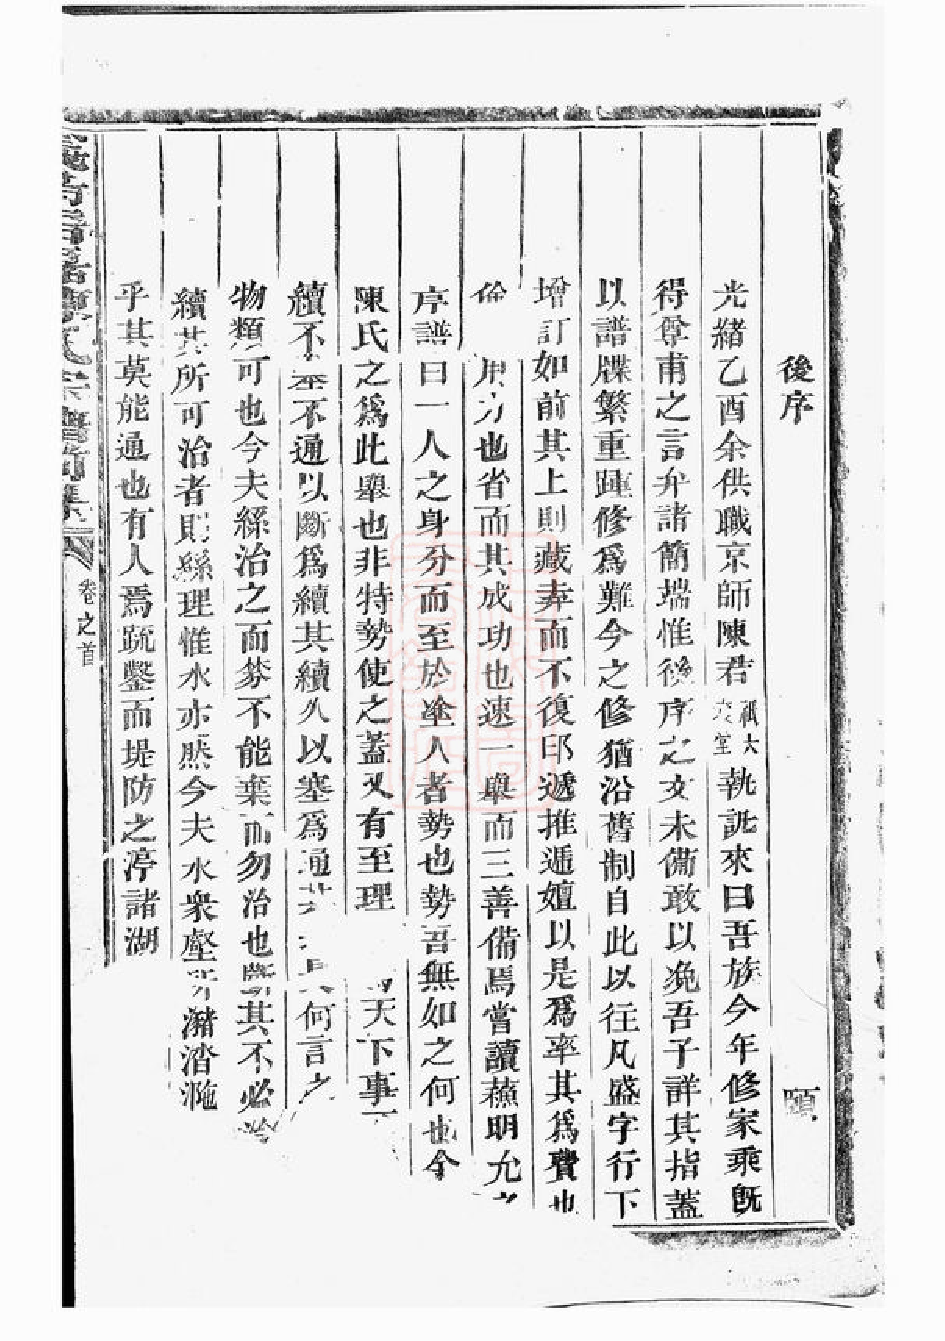 後序
光緒乙酉余供職京師陳君祺大堂執訿來曰吾族今年修家乘旣
得尊甫之言弁諸簡端惟後序之文未備敢以浼吾子詳其指蓋
以譜牒繁重踵修爲難今之修猶沿舊制自此以往凡盛字行下
增訂如前其上則藏弆而不復印遞推遞嬗以是爲率其爲費也
儉用力也省而其成功也速一舉而三善備焉嘗讀蘇明允之
序譜曰一人之身分而至於塗人者勢也勢吾無如之何也今
陳氏之爲此舉也非特勢使之蓋又有至理天下事
續不塞不通以斷爲續其續久以塞爲通其何言之
物類可也今夫絲治之而棼不能棄而勿治也斷其不必
續其所可治者則絲理惟水亦然今夫水衆壑
乎其莫能通也有人焉疏鑿而堤防之渟諸湖
宗譜
卷之首